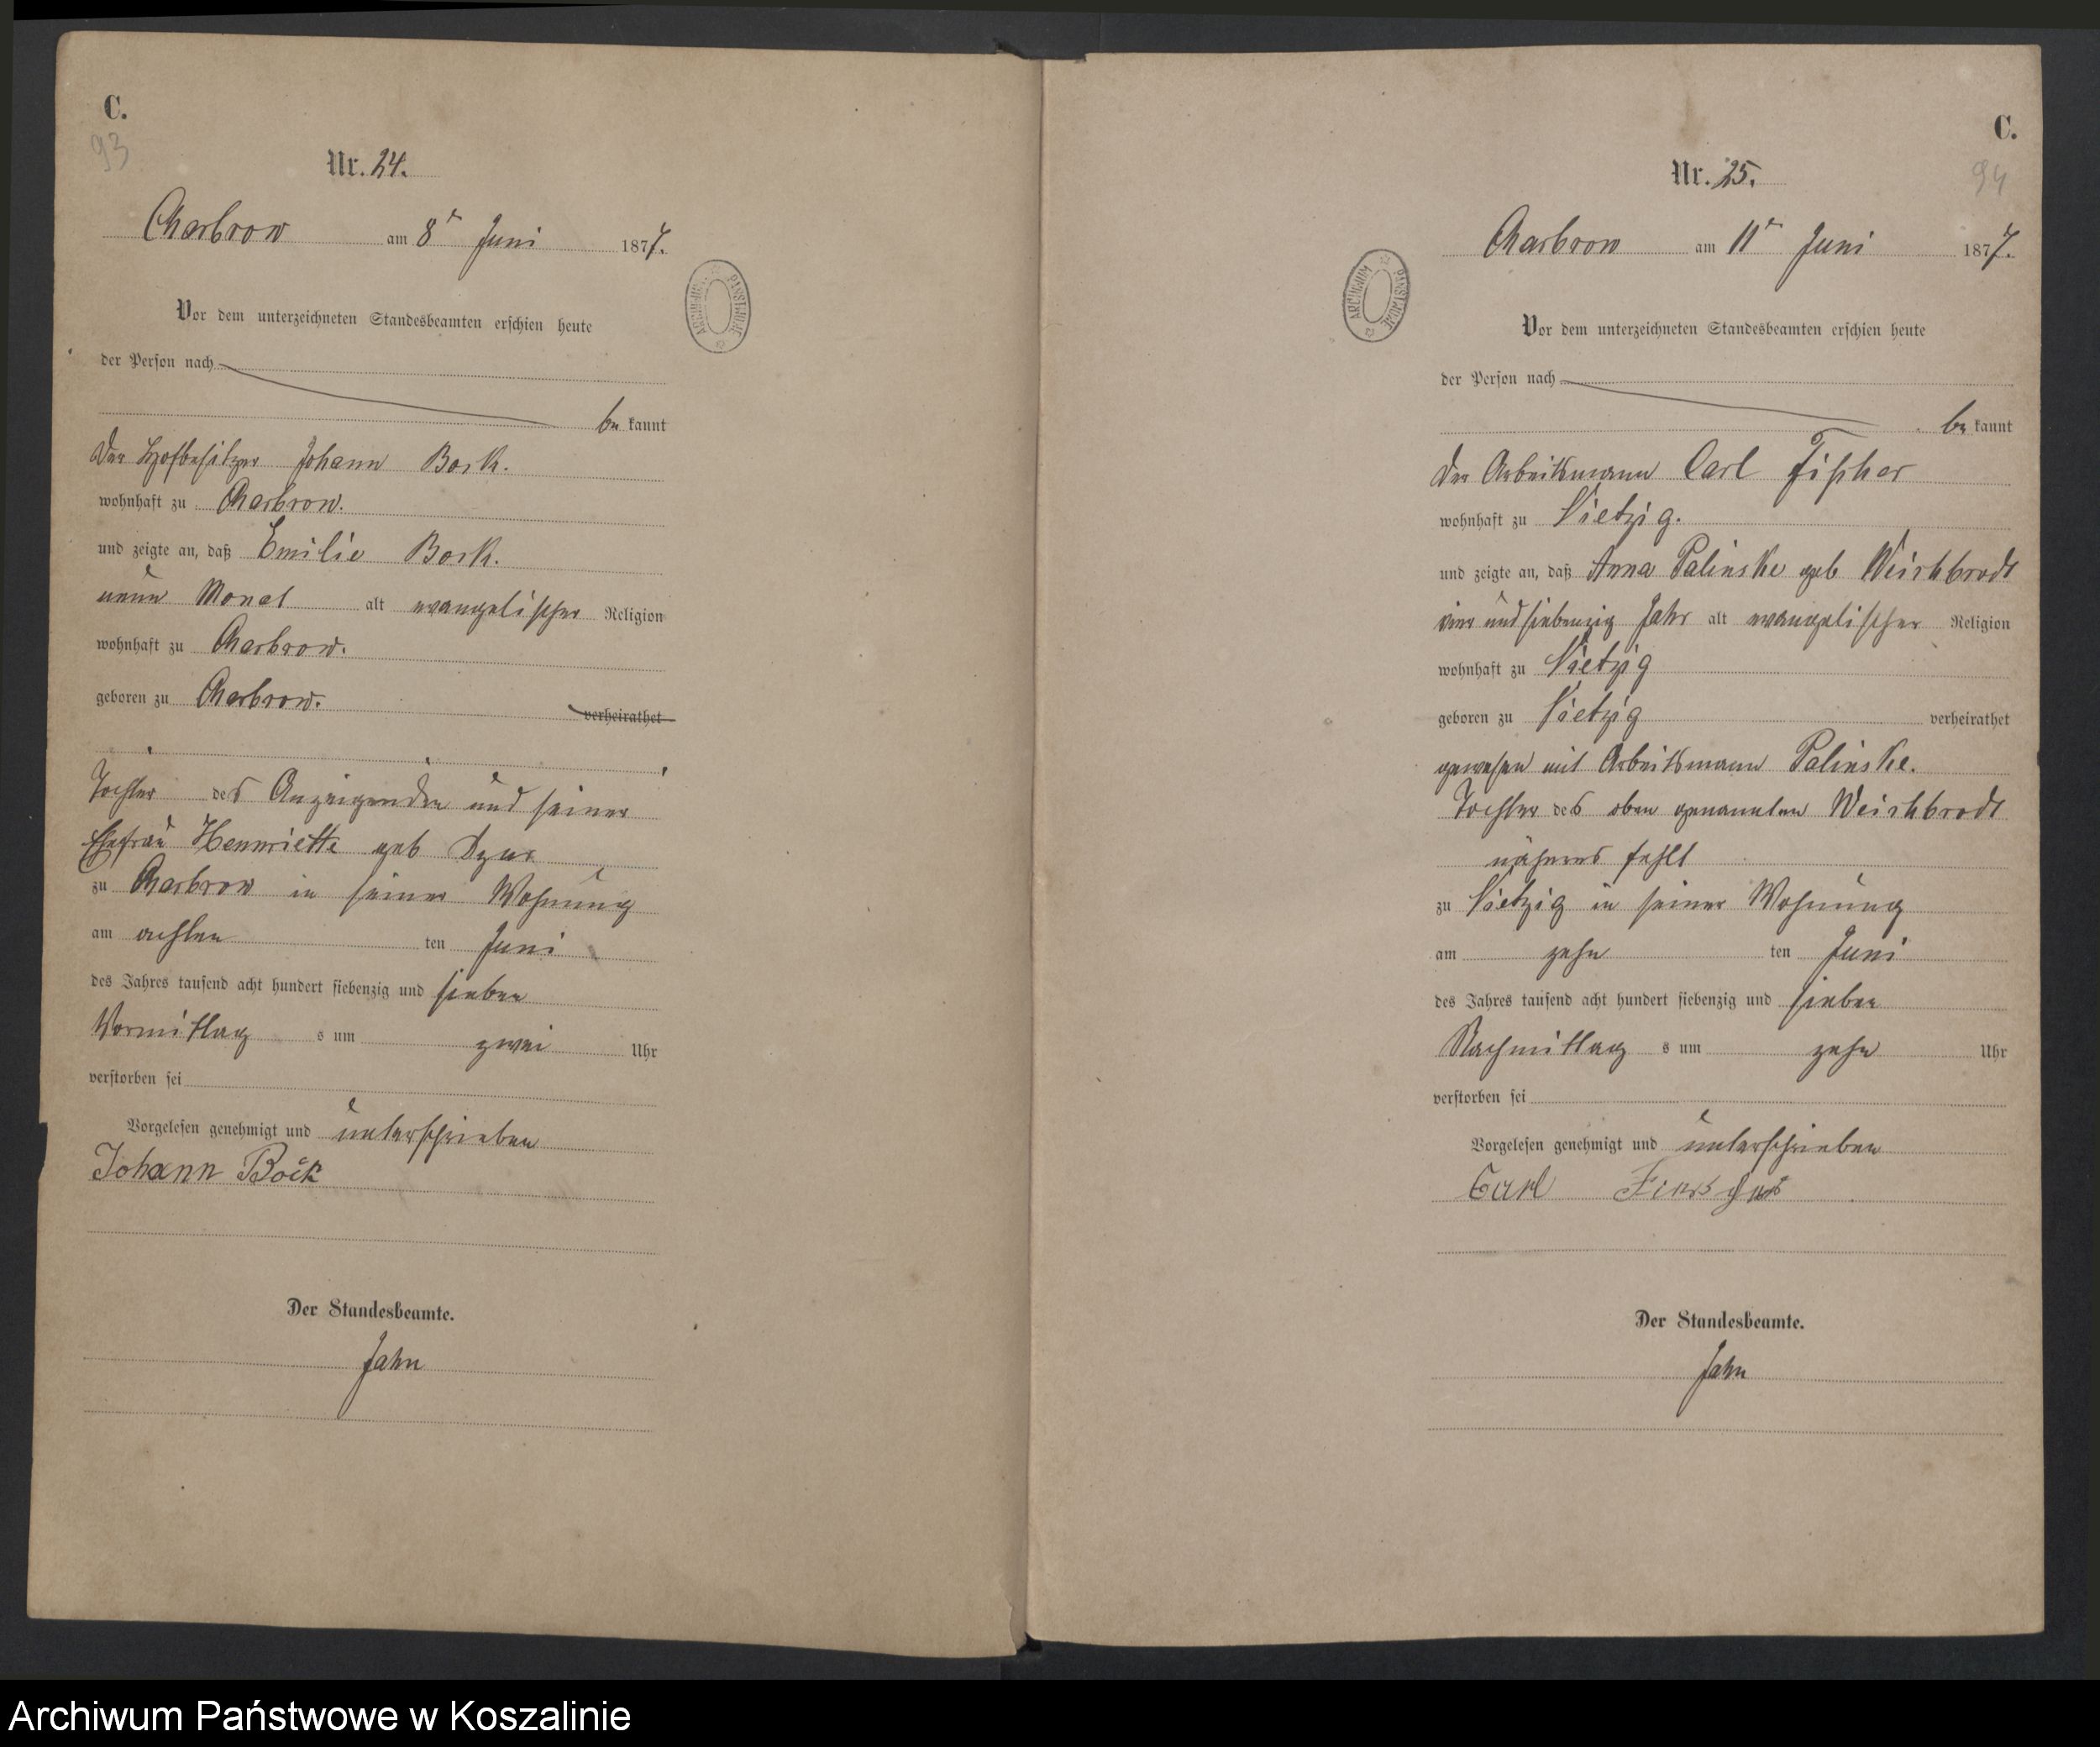 C.
93
Nr. 24.
Charbrow am 8t Juni 1877.
Vor dem unterzeichneten Standesbeamten erschien heute
der Person nach
be kannt
Der Hofbesitzer Johann Bock.
wohnhaft zu Charbrow.
und zeigte an, daß Emilie Bock.
neun Monat alt evangelischer Religion
wohnhaft zu Charbrow.
geboren zu Charbrow. verheirathet
Tochter des Anzeigenden und seiner
Ehefrau Hennriette geb
zu Charbrow in seiner Wohnung
am achten ten Juni
des Jahres tausend acht hundert siebenzig und sieben
Vormittag s um zwei Uhr
verstorben sei
Vorgelesen genehmigt und unterschrieben
Johann Bock
Der Standesbeamte.
Jahn
ARCHIWUM PAŃSTWOWE
C.
94
Nr. 25.
Charbrow am 11t Juni 1877.
Vor dem unterzeichneten Standesbeamten erschien heute
der Person nach
be kannt
Der Arbeitsmann Carl Fischer
wohnhaft zu Vietzig.
und zeigte an, daß Anna Palinske geb Weichbrodt
vier und siebenzig Jahr alt evangelischer Religion
wohnhaft zu Vietzig
geboren zu Vietzig verheirathet
gewesen mit Arbeitsmann Palinske.
Tochter des oben genannten Weichbrodt
näheres fehlt
zu Vietzig in seiner Wohnung
am zehn ten Juni
des Jahres tausend acht hundert siebenzig und sieben
Nachmittag s um zehn Uhr
verstorben sei
Vorgelesen genehmigt und unterschrieben
Carl
Der Standesbeamte.
Jahn
ARCHIWUM PAŃSTWOWE
Archiwum Państwowe w Koszalinie